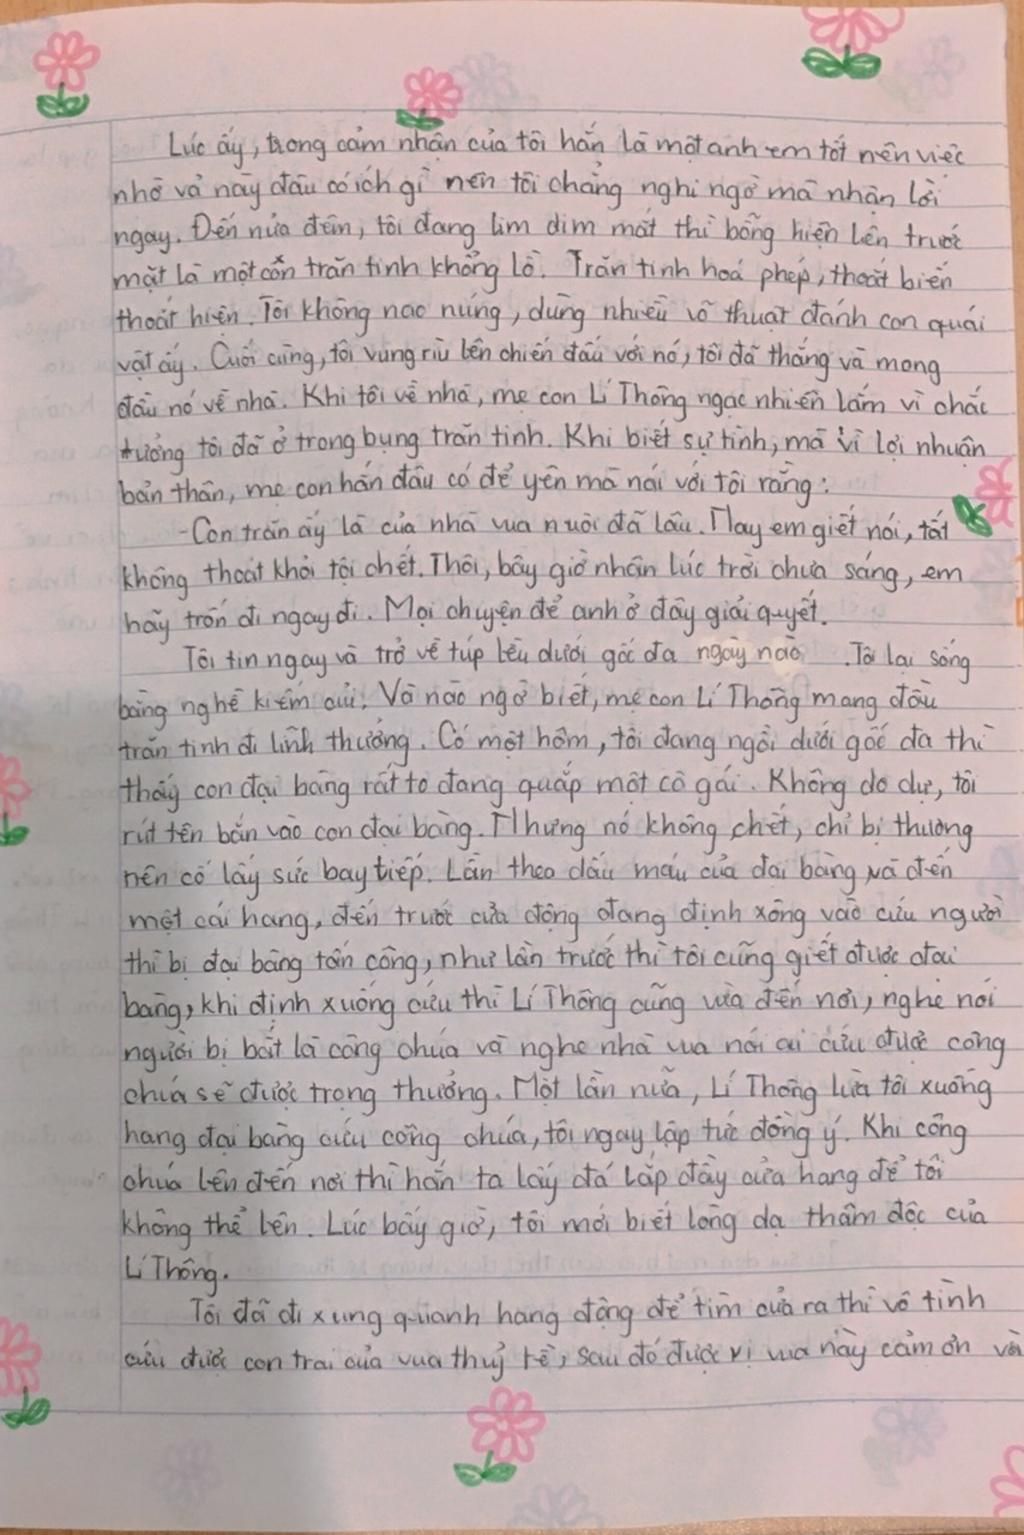 Lúc ấy, trong cảm nhận của tôi hắn là một anh em tốt nên việc
nhờ vả này đâu có ích gì nên tôi chẳng nghi ngờ mà nhận lời
ngay. Đến nửa đêm, tôi đang lim dim mắt thì bỗng hiện lên trước
mặt là một côn trăn tinh khổng lồ. Trăn tinh hoá phép, thoắt biến
thoắt hiện. Tôi không nao núng, dùng nhiều võ thuật đánh con quái
vật ấy. Cuối cùng, tôi vung rìu lên chiến đấu với nó, tôi đã thắng và mang
đầu nó về nhà. Khi tôi về nhà, mẹ con Lí Thông ngạc nhiên lắm vì chắc
tưởng tôi đã ở trong bụng trăn tinh. Khi biết sự tình, mà vì lợi nhuận
bản thân, mẹ con hắn đâu có để yên mà nói với tôi rằng:
-Con trăn ấy là của nhà vua nuôi đã lâu. Nay em giết nói, tất
không thoát khỏi tội chết. Thôi, bây giờ nhân lúc trời chưa sáng, em
hãy trốn đi ngay đi. Mọi chuyện để anh ở đây giải quyết.
Tôi tin ngay và trở về túp lều dưới gốc đa ngày nào. Tôi lại sống
bằng nghề kiếm củi. Và nào ngờ biết, mẹ con Lí Thông mang đầu
trăn tinh đi lĩnh thưởng. Có một hôm, tôi đang ngồi dưới gốc đa thì
thấy con đại bàng rất to đang quắp một cô gái. Không do dự, tôi
rút tên bắn vào con đại bàng. Nhưng nó không chết, chỉ bị thương
nên cố lấy sức bay tiếp. Lần theo dấu máu của đại bàng và đến
một cái hang, đến trước cửa động đang định xông vào cứu người
thì bị đại bàng tấn công, như lần trước thì tôi cũng giết được đại
bàng, khi định xuống cứu thì Lí Thông cũng vừa đến nơi, nghe nói
người bị bắt là công chúa và nghe nhà vua nói ai cứu được công
chúa sẽ được trọng thưởng. Một lần nữa, Lí Thông lừa tôi xuống
hang đại bàng cứu công chúa, tôi ngay lập tức đồng ý. Khi công
chúa lên đến nơi thì hắn ta lấy đá lắp đầy cửa hang để tôi
không thể lên. Lúc bấy giờ, tôi mới biết lòng dạ thâm độc của
Lí Thông.
Tôi đã đi xung quanh hang động để tìm cửa ra thì vô tình
cứu được con trai của vua thuỷ tề, sau đó được vị vua này cảm ơn và